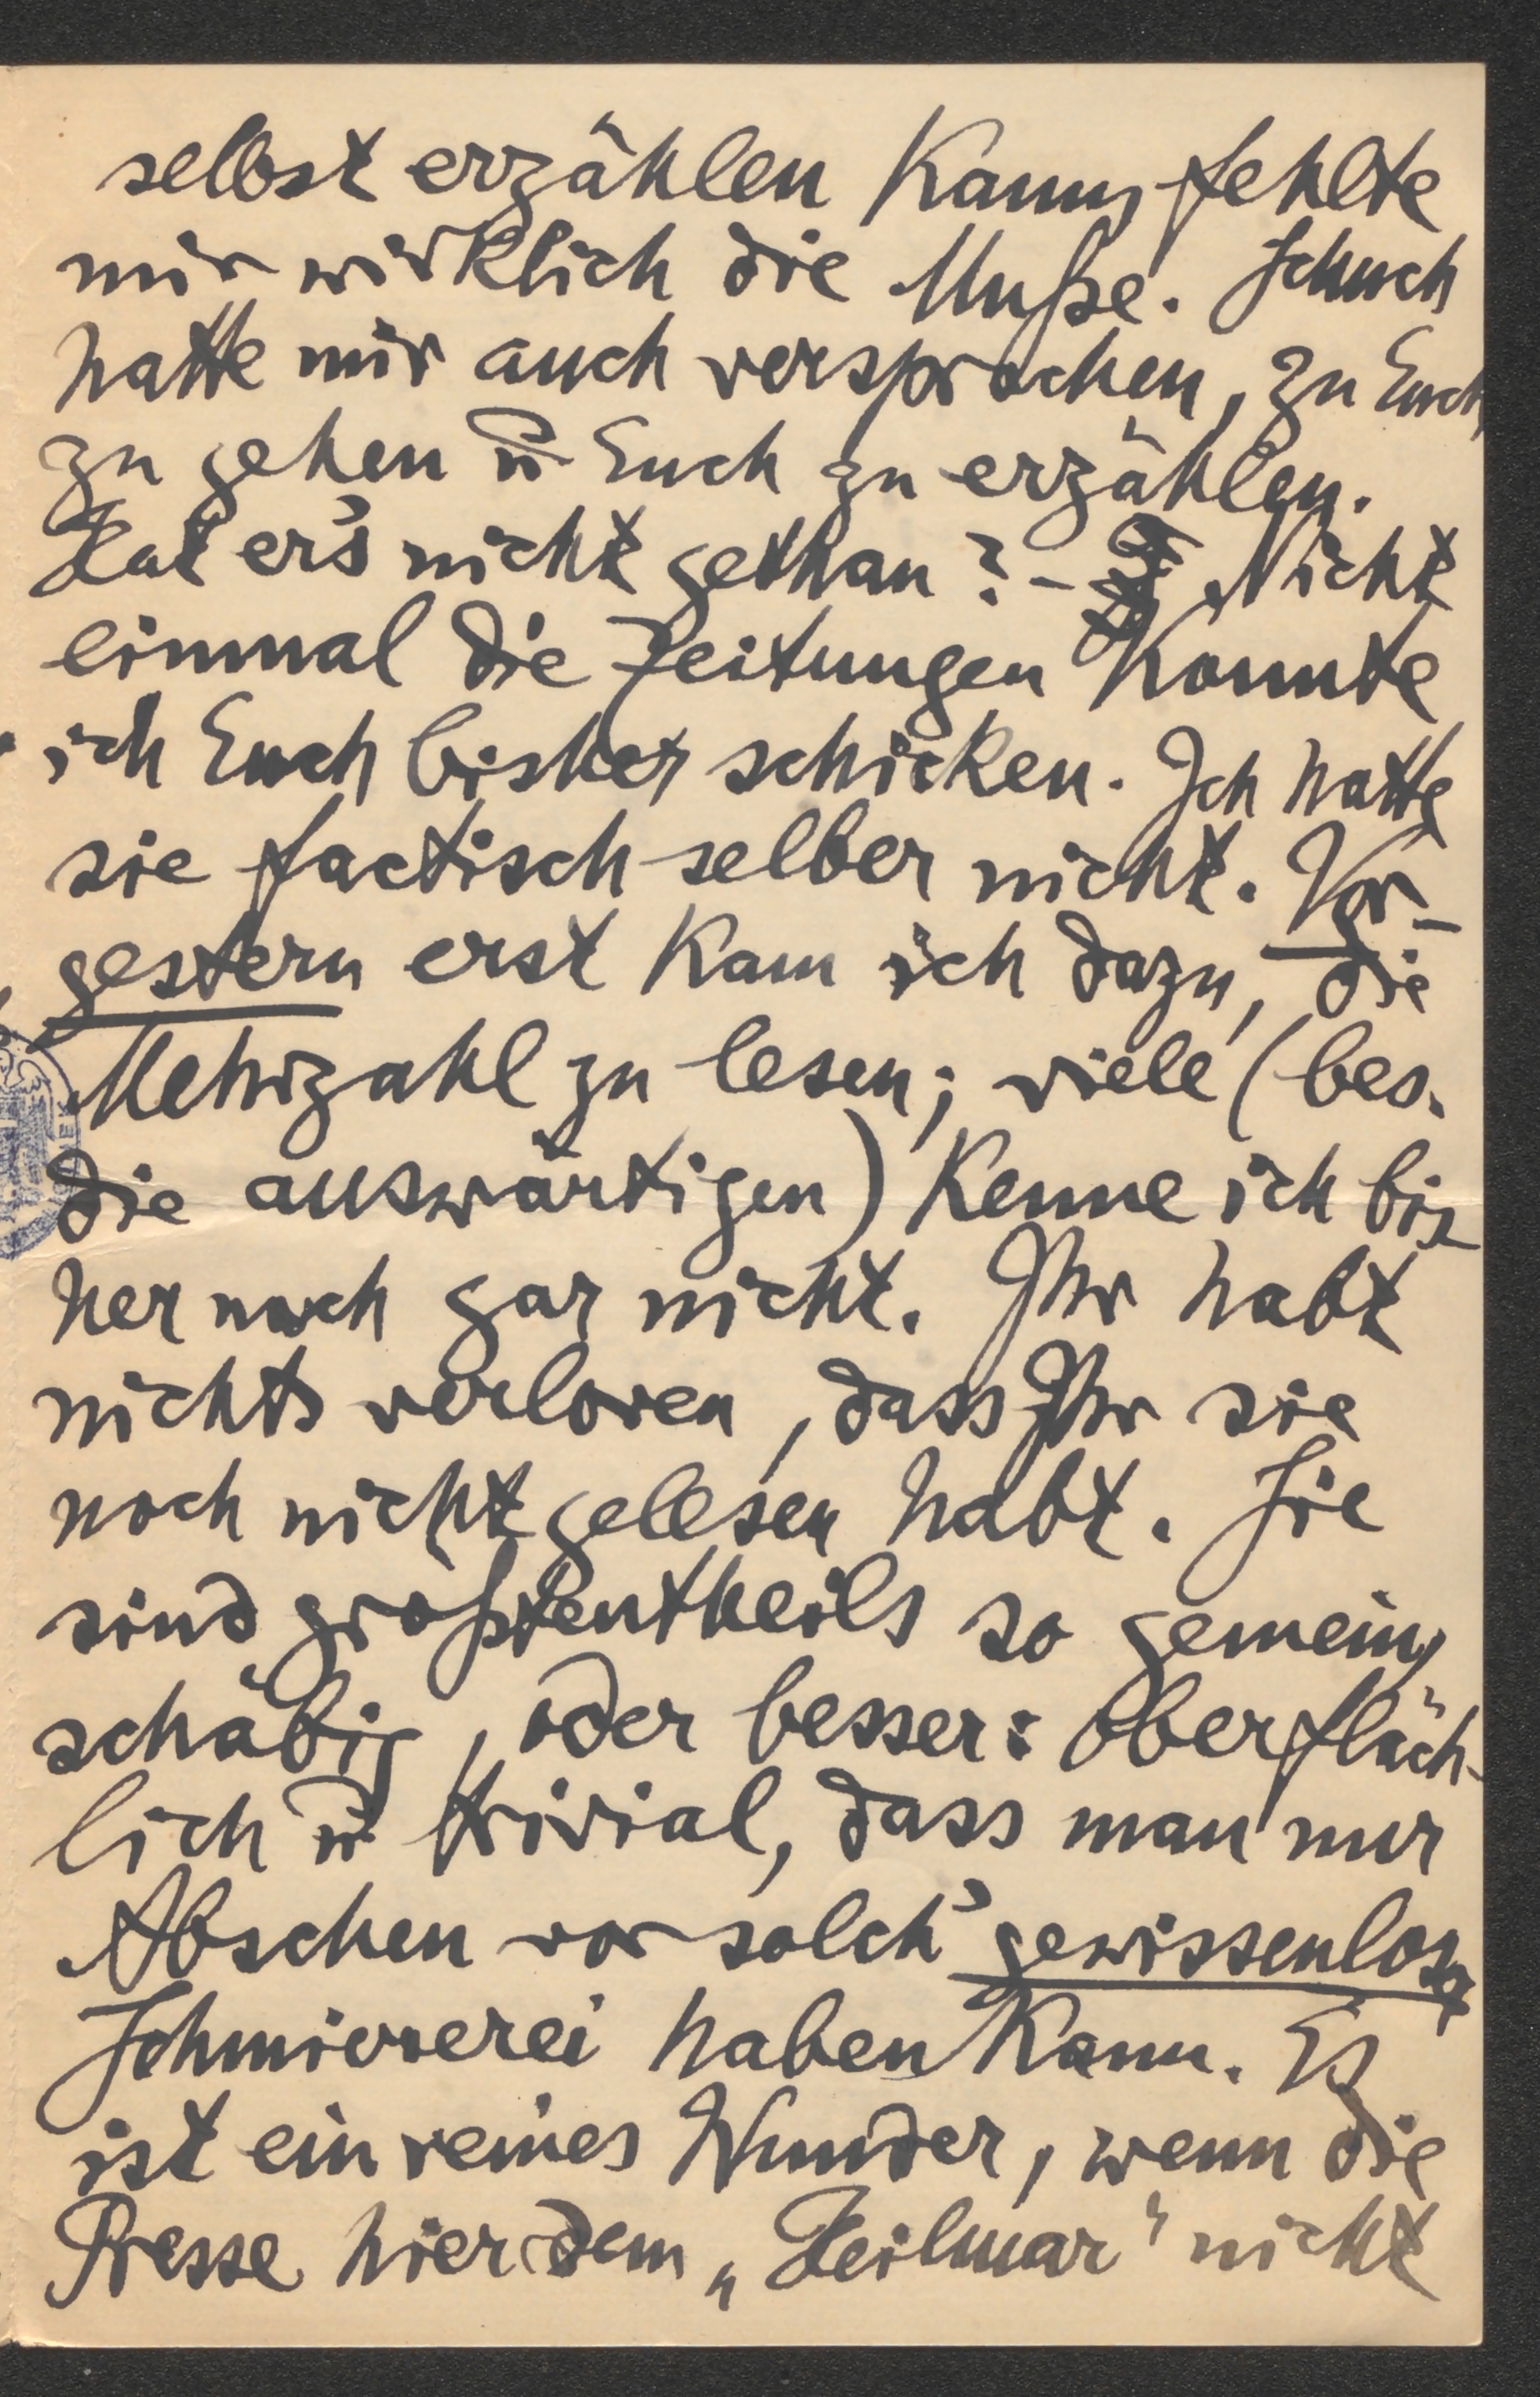 selbst erzählen kann, fehlte
mir wirklich die Muße. Schuch
hatte mir auch versprochen, zu Euch
zu gehen u Euch zu erzählen.
Hat er's nicht gethan? - Nicht
einmal die Zeitungen konnte
ich Euch bisher schicken. Ich hatte
sie factisch selber nicht. Vor-
gestern erst kam ich dazu, die
Mehrzahl zu lesen; viele (bes.
die auswärtigen) kenne ich bis
her noch gar nicht. Ihr habt
nichts verloren, dass Ihr sie
noch nicht gelesen habt. Sie
sind größtentheils so gemein,
schäbig, oder besser: oberfläch-
lich u trivial, dass man nur
Abscheu vor solch' gewissenloser
Schmiererei haben kann. Es
ist ein reines Wunder, wenn die
Presse hier dem „Feilmar" nicht